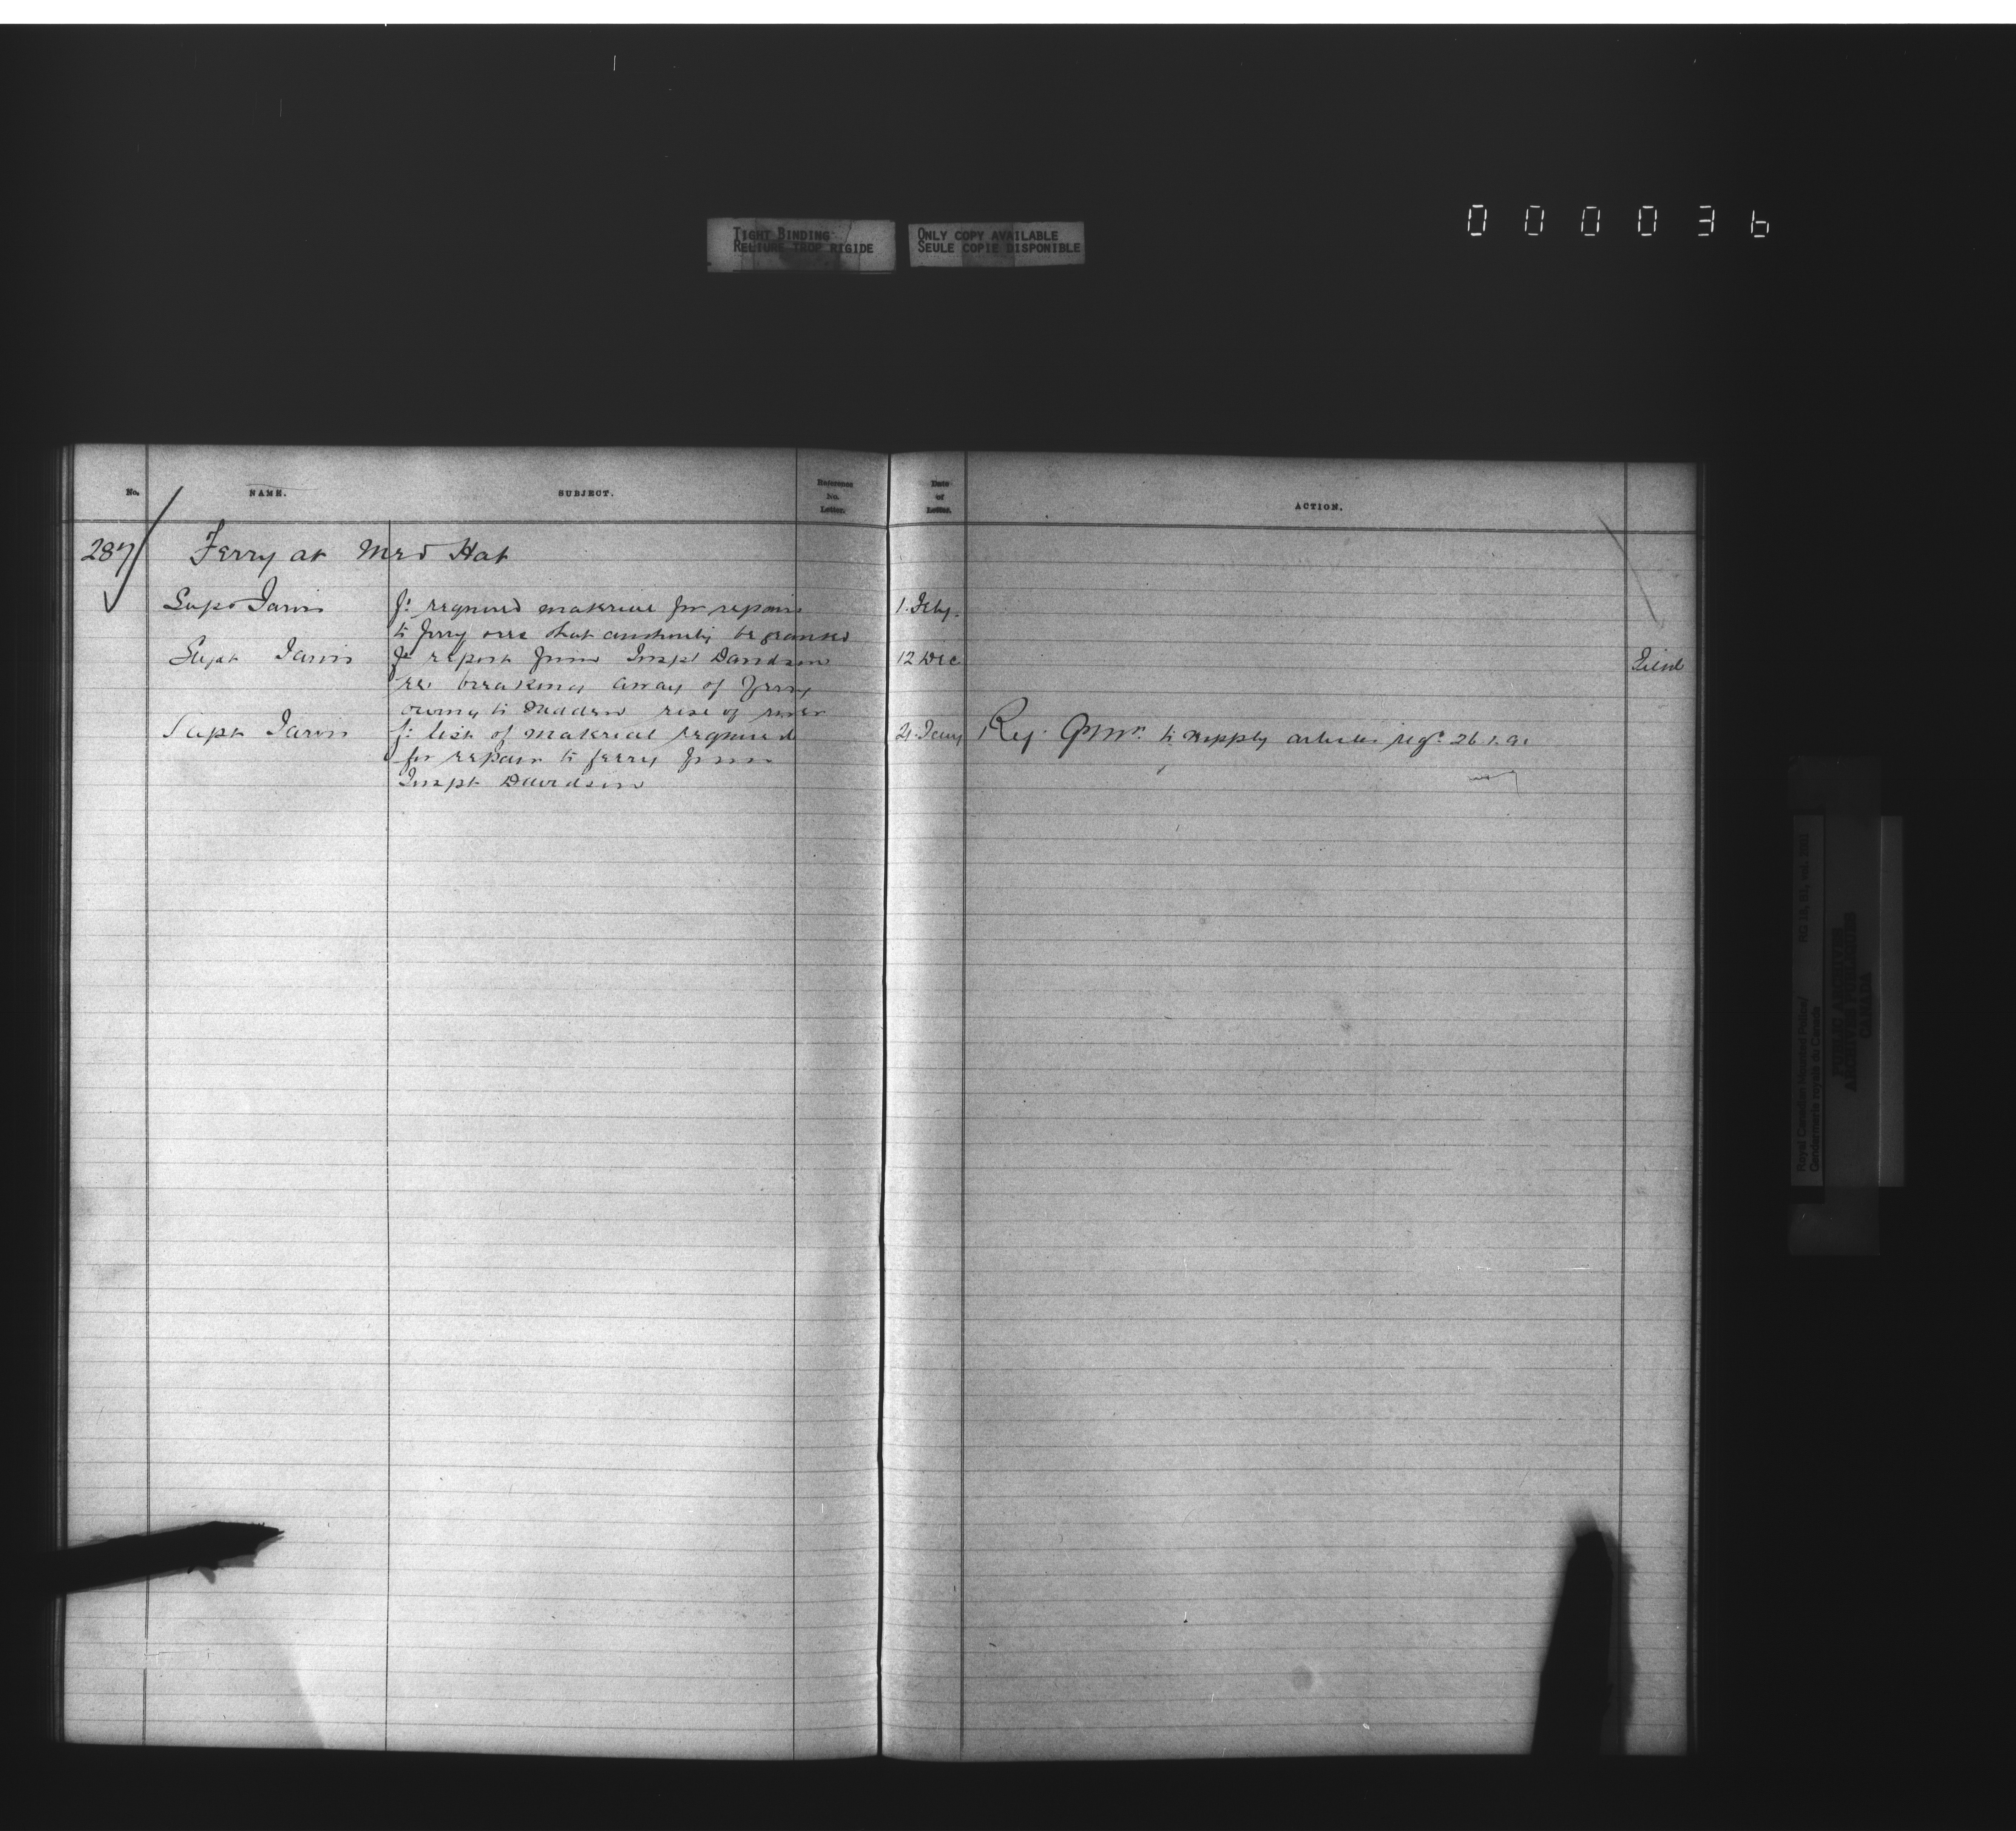 000036
TIGHT BINDING
RELIURE TROP RIGIDE
ONLY COPY AVAILABLE
SEULE COPIE DISPONIBLE
No. NAME. SUBJECT. Reference No. Letter. Date of Letter. ACTION.
287 Ferry at Med Hat
Supt Jarvis f: required material for repairs 1. Feby.
to ferry that authority be granted
Supt Jarvis report from Inspt Davidson 12 Dec
re. breaking away of ferry
owing to sudden rise of river
Supt Jarvis f: list of material required Jany Reg. to supply articles reqd 26.1.91
for repair to ferry from
Inspt Davidson
Royal Canadian Mounted Police/
Gendarmerie royale du Canada
PUBLIC ARCHIVES
ARCHIVES PUBLIQUES
CANADA